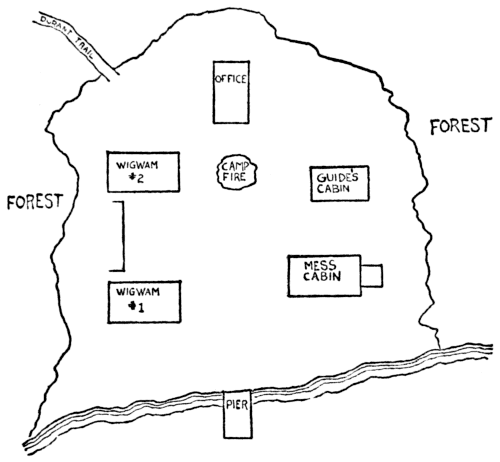 DURANT TRAIL
OFFICE
FOREST
WIGWAM
#2
CAMP
FIRE
GUIDE'S
CABIN
FOREST
MESS
CABIN
WIGWAM
#1
PIER